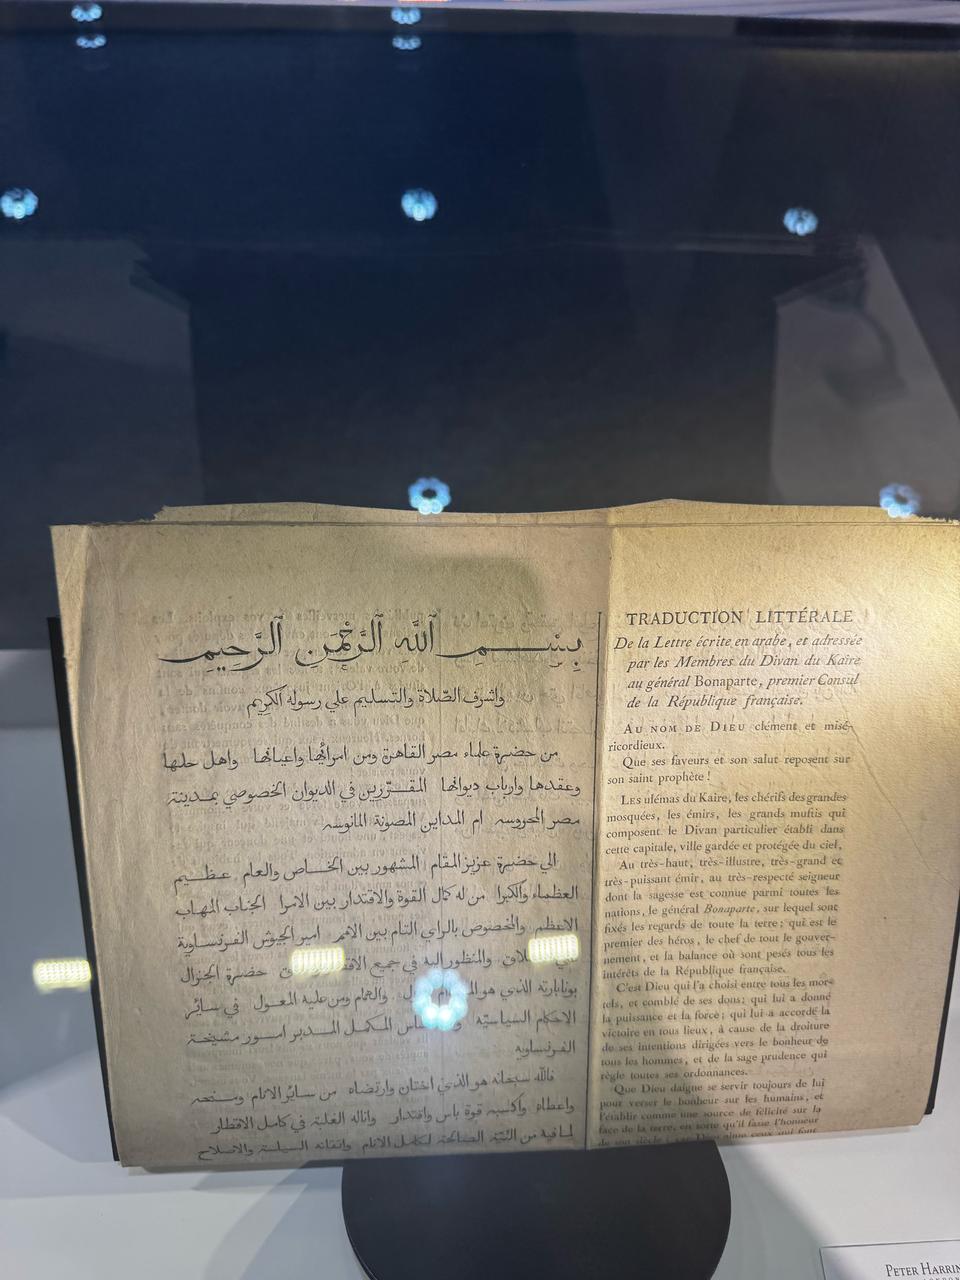 بِسْمِ ٱللَّهِ ٱلرَّحْمَنِ ٱلرَّحِيمِ
واشرف الصّلاة والتسليم علي رسوله الكريم
من حضرة علماء مصر القاهرة ومن امرائها واعيانها واهل حلها
وعقدها وارباب ديوانها المقرّرين في الديوان الخصوصي بمدينة
مصر المحروسه ام المداين المصونة المانوسه
الي حضرة عزيز المقام المشهور بين الخاص والعام عظيم
العظماء والكبرا من له كمال القوة والاقتدار بين الامرا الجناب المهاب
الاعظم والمخصوص بالراي التام بين الامم امير الجيوش الفرنساوية
والمنظور اليه في جميع حضرة الجنرال
بونابارته الذي هو ومن عليه المعول في سائر
الاحكام السياسيّه المكمل المدبر امور مشيخة
الفرنساويه
فالله سبحانه هو الذي اختان وارتضاه من سائر الانام ومنحه
واعطاه واكسبه قوة باس واقتدار واناله الغلبة في كامل الاقطار
لما فيه من النيّة الصالحة لكامل الانام واتقانه السياسة والاصلاح
TRADUCTION LITTÉRALE
De la Lettre écrite en arabe, et adressée
par les Membres du Divan du Kaire
au général Bonaparte, premier Consul
de la République française.
AU NOM DE DIEU clément et misé-
ricordieux.
Que ses faveurs et son salut reposent sur
son saint prophète !
LES ulémas du Kaire, les chérifs des grandes
mosquées, les émirs, les grands muftis qui
composent le Divan particulier établi dans
cette capitale, ville gardée et protégée du ciel,
Au très-haut, très-illustre, très-grand et
très-puissant émir, au très-respecté seigneur
dont la sagesse est connue parmi toutes les
nations, le général Bonaparte, sur lequel sont
fixés les regards de toute la terre ; qui est le
premier des héros, le chef de tout le gouver-
nement, et la balance où sont pesés tous les
intérêts de la République française.
C'est Dieu qui l'a choisi entre tous les mor-
tels, et comblé de ses dons ; qui lui a donné
la puissance et la force ; qui lui a accordé la
victoire en tous lieux, à cause de la droiture
de ses intentions dirigées vers le bonheur de
tous les hommes, et de la sage prudence qui
règle toutes ses ordonnances.
Que Dieu daigne se servir toujours de lui
pour verser le bonheur sur les humains, et
l'établir comme une source de félicité sur la
face de la terre, en sorte qu'il fasse l'honneur
de son siècle ; car Dieu aime ceux qui font
PETER HARRIN